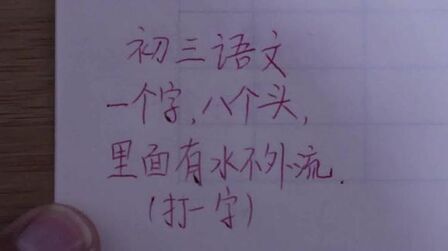 初三语文
一个字,八个头,
里面有水不外流.
(打一字)